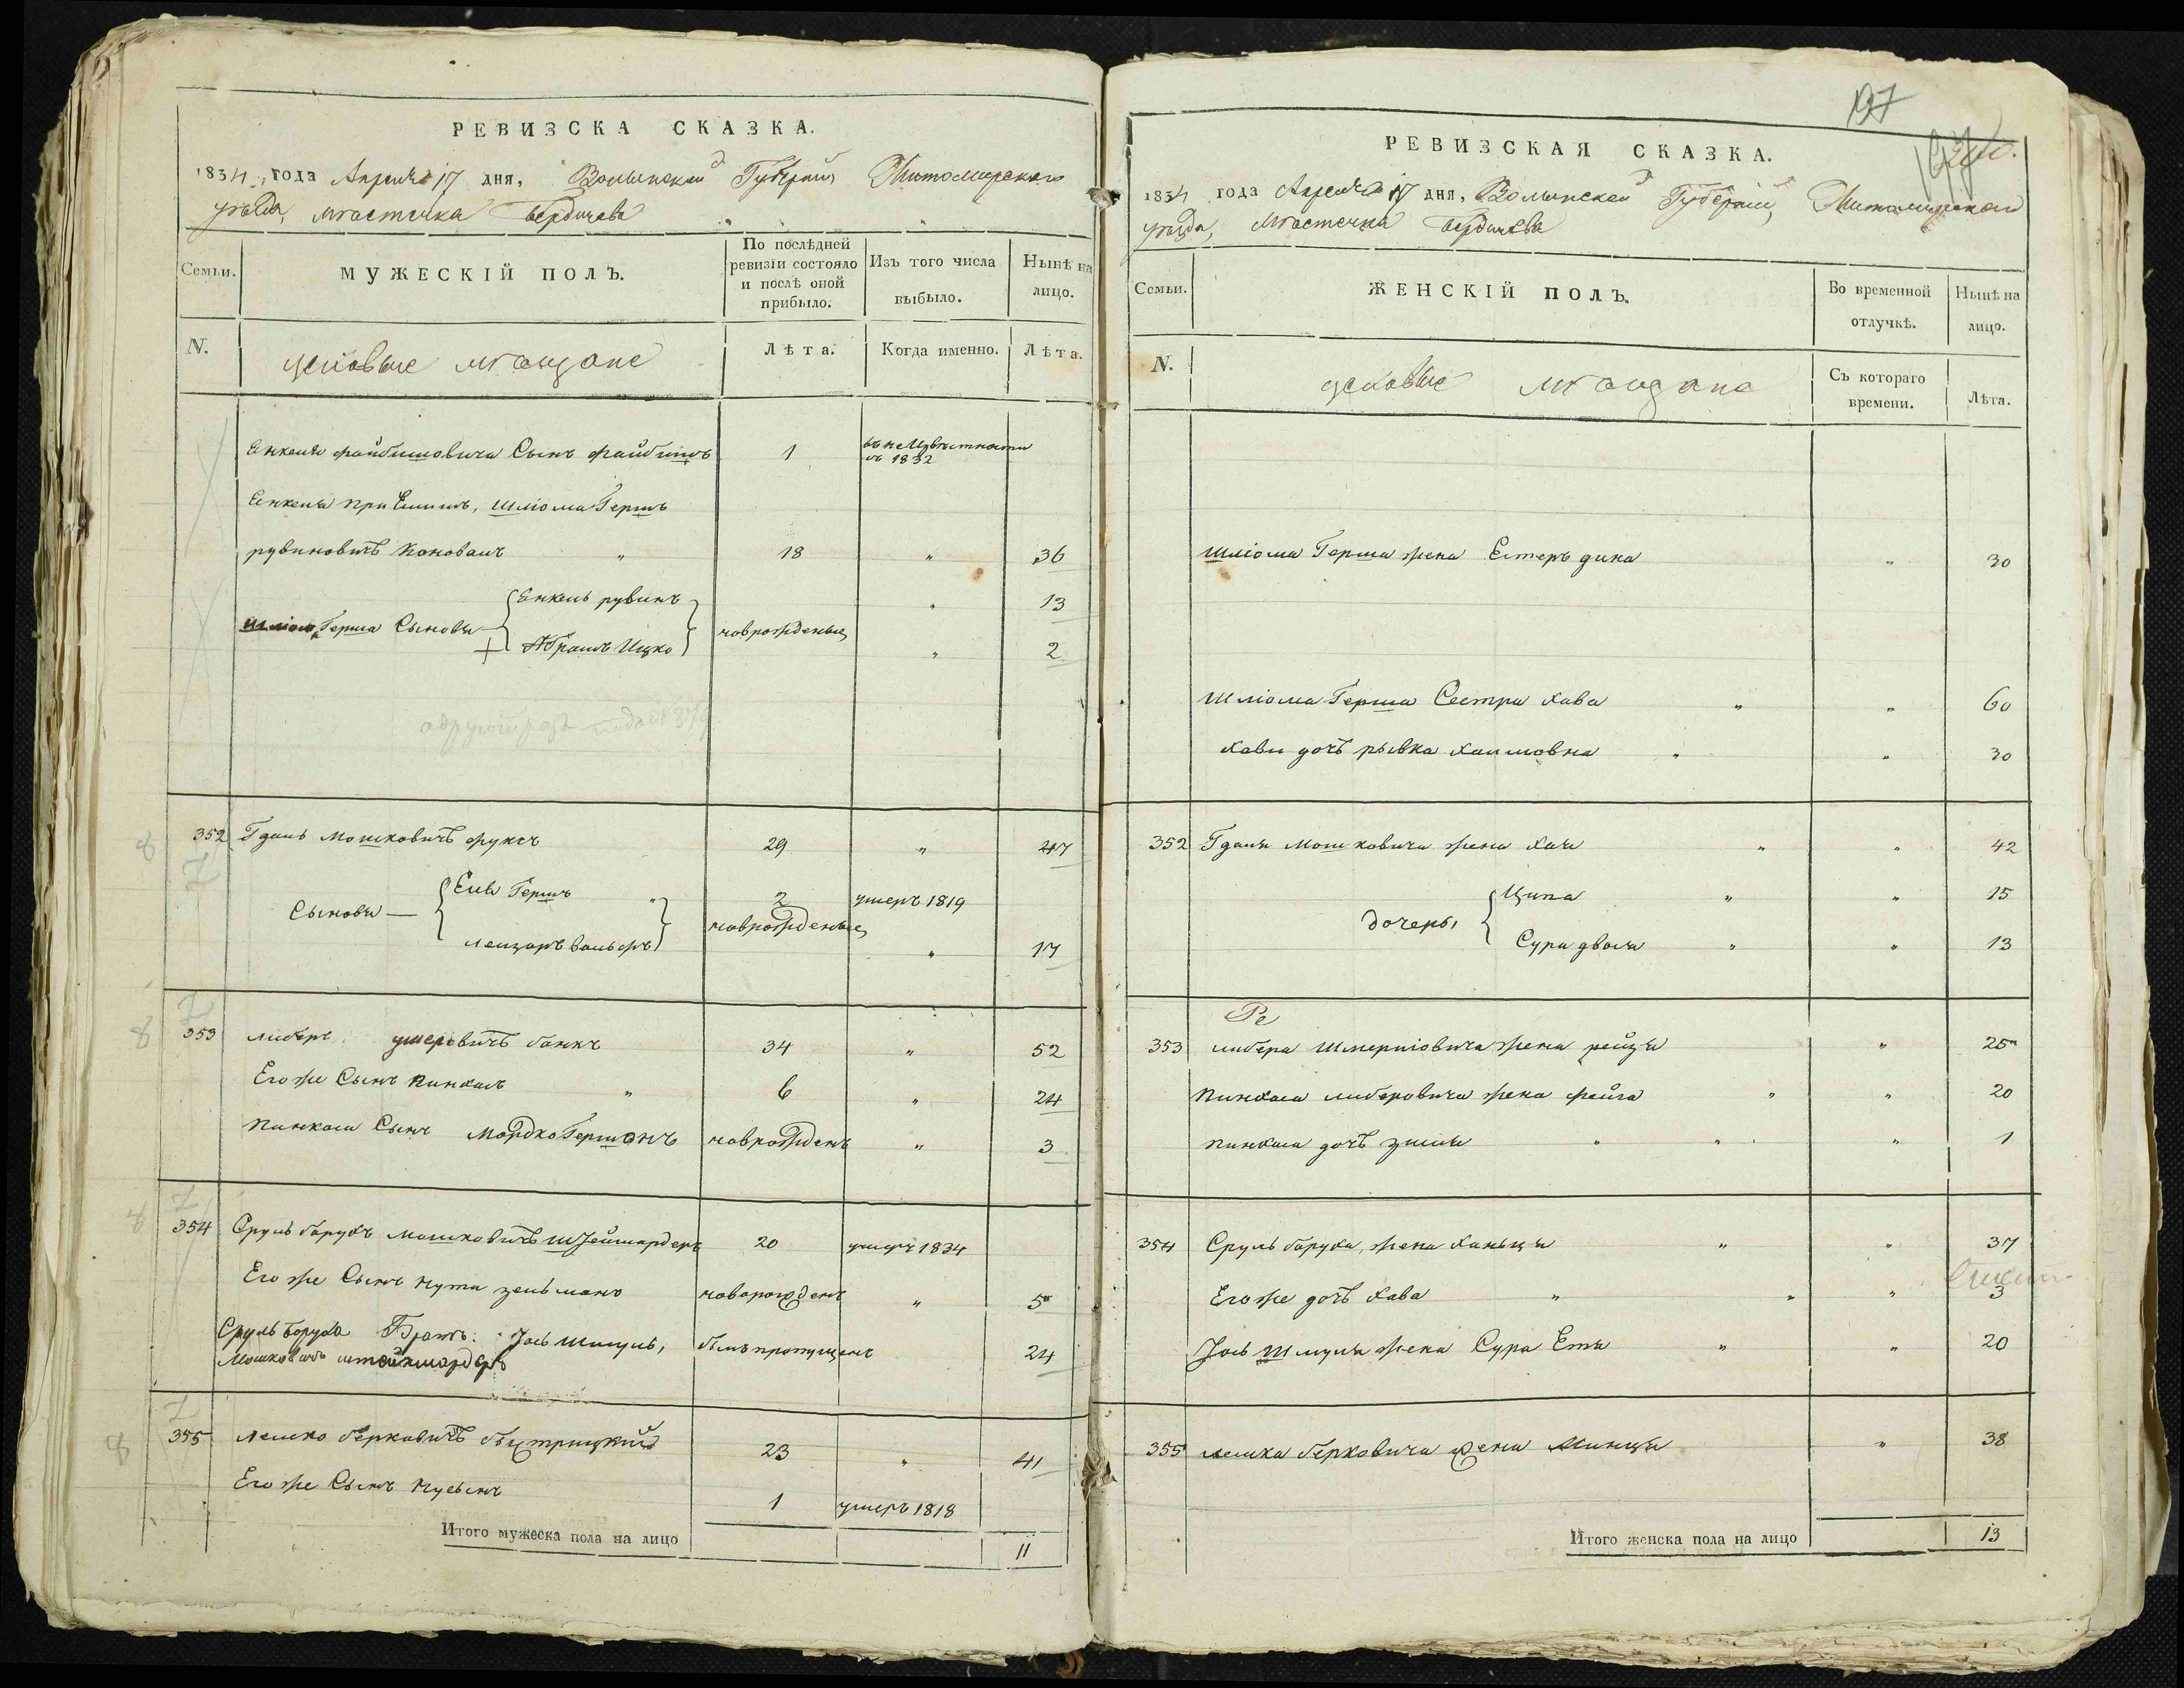 РЕВИЗСКА СКАЗКА.
1834 года Апреля 17 дня, Волынской Губерніи, Житомирского
уезда, местечка Бердичева
Семьи.
МУЖЕСКІЙ ПОЛЪ.
По послѣдней ревизіи состояло и послѣ оной прибыло.
Изъ того числа выбыло.
Нынѣ на лицо.
N.
цеховые мещане
Лѣта.
Когда именно.
Лѣта.
Енкеля файбишовича Сынъ файбишъ 1 въ неизвѣстности въ 1832
Енкеля при Емышъ, Шліома Гершъ
рувиновичъ Коновалъ " 18 " 36
Шліома Герша Сыновя Енкель рувинъ новорожденые " 13
+ Абрамъ Ицко " 2
352 Гдаль Мошковичъ фуксъ 29 " 47
Сыновя — Еля Гершъ " 2 умеръ 1819
лейзоръ вольфъ новорожденые " 17
353 либеръ умеровичъ банкъ 34 " 52
Его же Сынъ Пинхасъ " 6 " 24
Пинхаса Сынъ Мордко Гершонъ новорожденъ " 3
354 Сруль барухъ мошковичъ 20 умеръ 1834
Его же Сынъ нута зельманъ новорожденъ " 5
Сруль Боруха Братъ Іось Шмуль, былъ пропущенъ 24
Мошковичъ
355 лейко берковичъ быстрицкий 23 " 41
Его же Сынъ нусынъ 1 умеръ 1818
Итого мужеска пола на лицо 11
197
РЕВИЗСКАЯ СКАЗКА.
1834 года Апреля 17 дня, Волынской Губерніи, Житомирского
уезда, местечка Бердичева
Семьи.
ЖЕНСКІЙ ПОЛЪ.
Во временной отлучкѣ.
Нынѣ на лицо.
N.
цеховые мещане
Съ котораго времени.
Лѣта.
Шліома Герша жена Естеръ дина " 30
Шліома Герша Сестра Хава " " 60
Хавы дочъ рывка Хаимовна " " 30
352 Гдаля мошковича жена Хая " " 42
дочеры Ципа " " 15
Сура двося " " 13
Ре
353 либера жена рейзя " 25
Пинхаса либеровича жена фейга " " 20
Пинхаса дочъ " " " 1
354 Сруль баруха, жена Ханьця " " 37
Его же дочъ Хава " " " 3
Іось Шмуля жена Сура Етя " " 20
355 лейка берковича жена Минця " 38
Итого женска пола на лицо 13